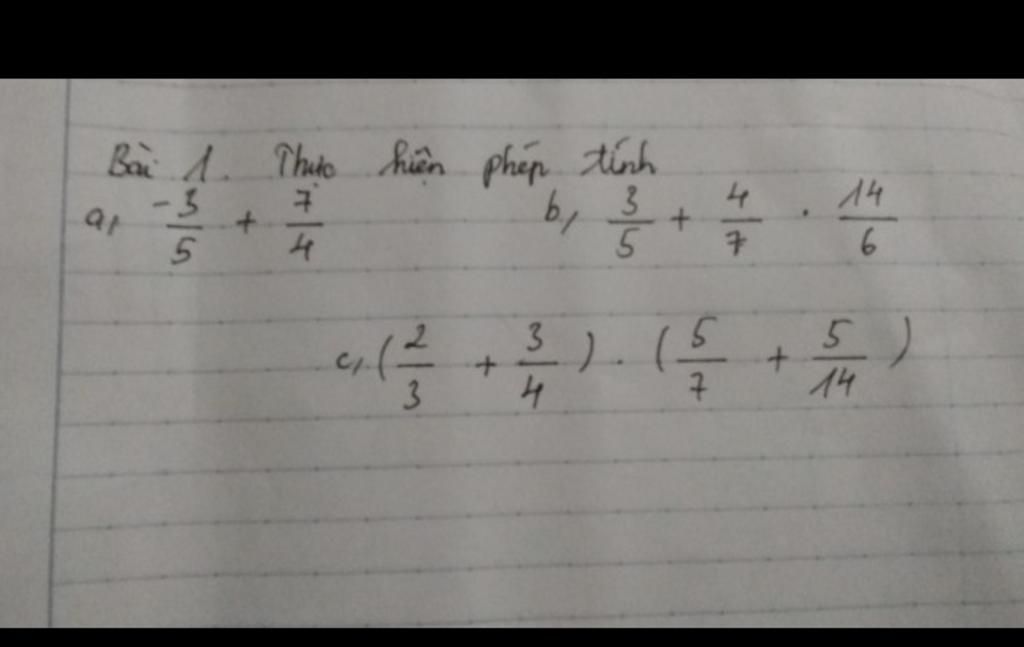 Bài 1. Thực hiện phép tính
a, -3/5 + 7/4 b, 3/5 + 4/7 . 14/6
c, (2/3 + 3/4) . (5/7 + 5/14)